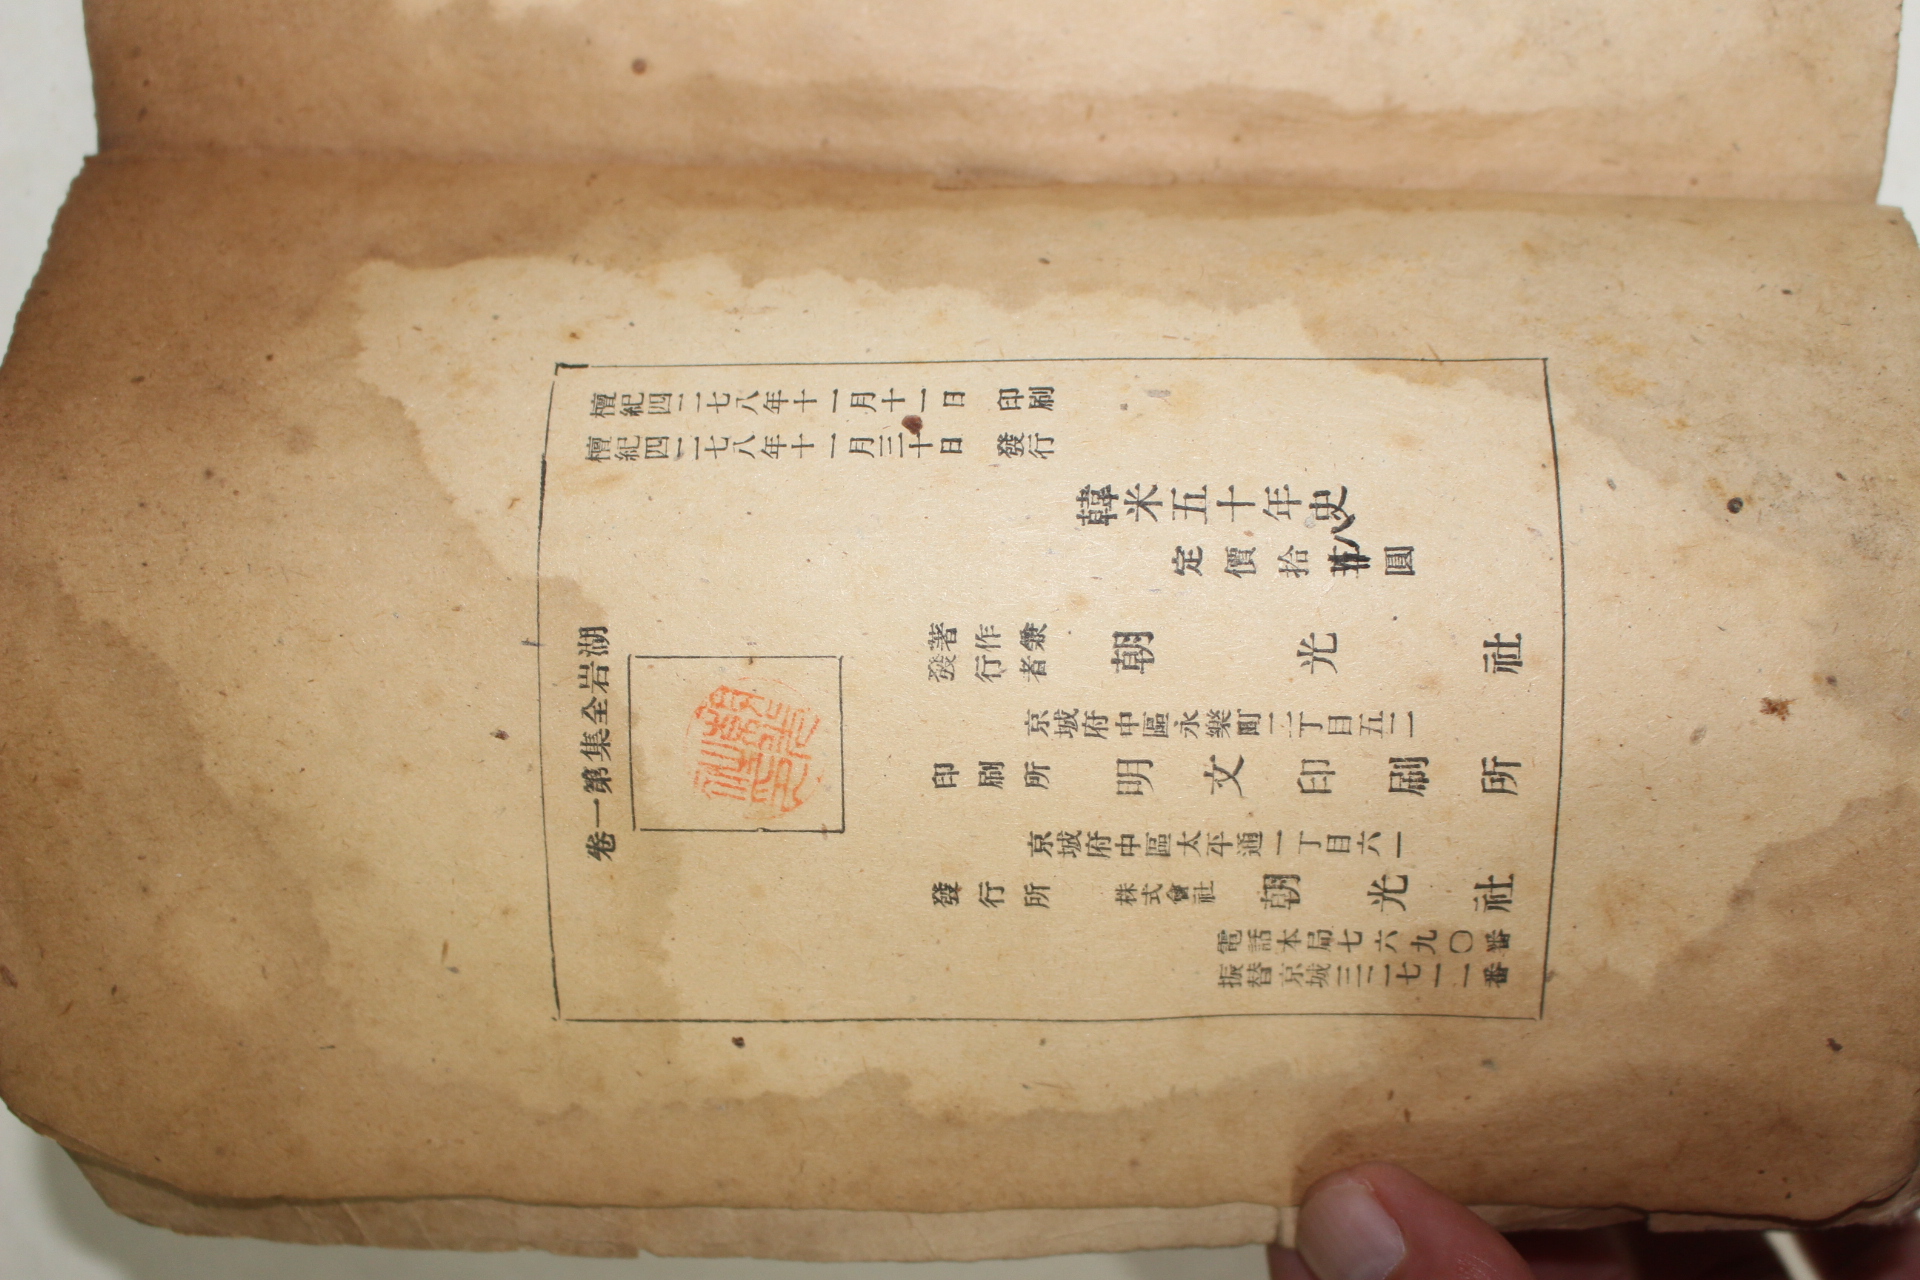 湖岩全集第一卷
檀紀四二七八年十一月十一日 印刷
檀紀四二七八年十一月三十日 發行
韓米五十年史
定價拾八圓
著作兼發行者 朝光社
京城府中區永樂町二丁目五二
印刷所 明文印刷所
京城府中區太平通一丁目六一
發行所 株式會社 朝光社
電話本局七六九〇番
振替京城三二七一一番